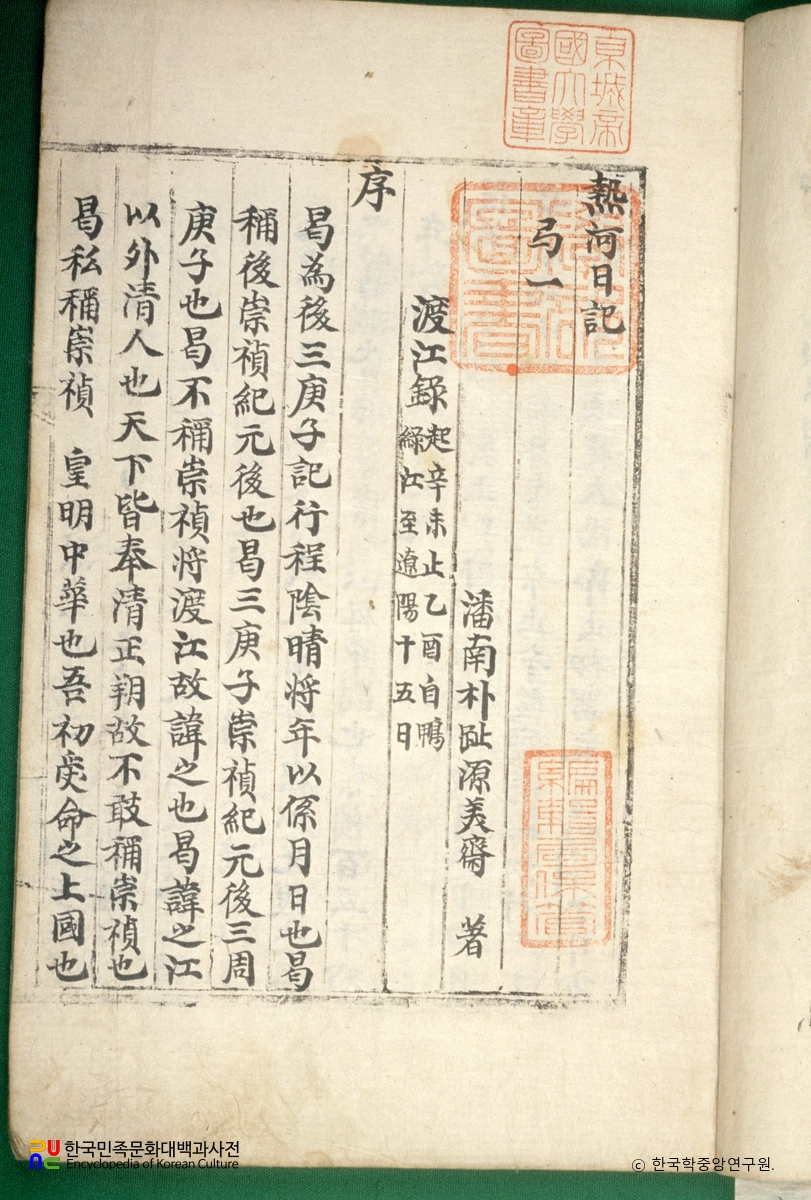 熱河日記
弓一
潘南朴趾源美齋 著
渡江錄 起辛未止乙酉自鴨
綠江至遼陽十五日
序
曷為後三庚子記行程陰晴將年以係月日也曷
稱後崇禎紀元後也曷三庚子崇禎紀元後三周
庚子也曷不稱崇禎將渡江故諱之也曷諱之江
以外清人也天下皆奉清正朔故不敢稱崇禎也
曷私稱崇禎 皇明中華也吾初受命之上國也
京城帝
國大學
圖書章
한국민족문화대백과사전
Encyclopedia of Korean Culture
© 한국학중앙연구원.